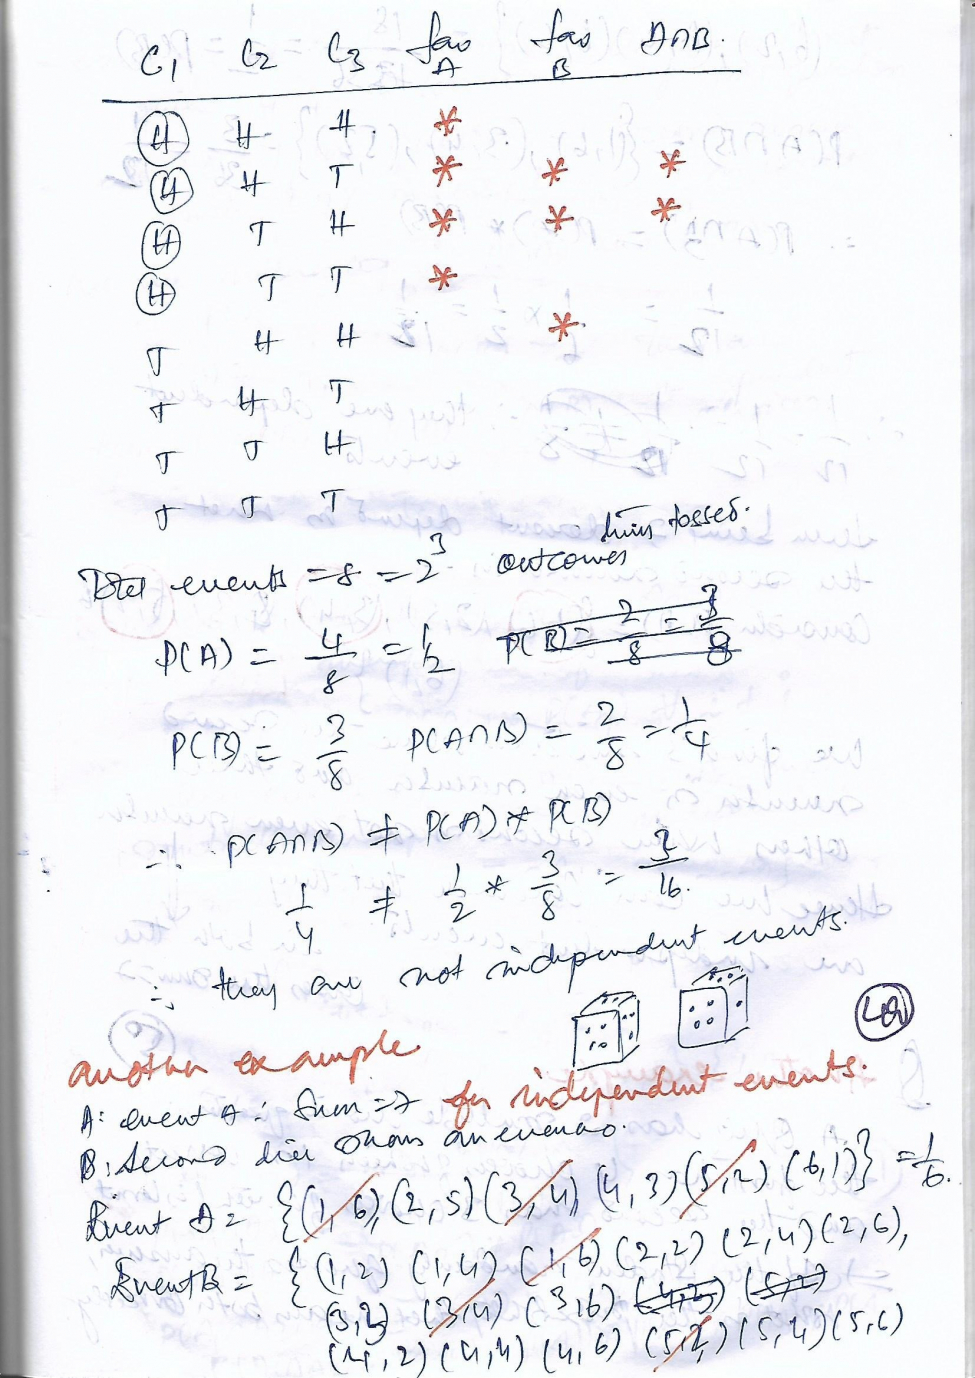 C1 C2 C3 fav A fav B A∩B.
H H H. *
H H T * * *
H T H * * *
H T T *
T H H *
T H T
T T H
T T T
Total events = 8 = 2^3 outcomes tossed.
P(A) = 4/8 = 1/2 P(B) = 2/8 = 3/8
P(B) = 3/8 P(A∩B) = 2/8 = 1/4
∴ P(A∩B) ≠ P(A) * P(B)
1/4 ≠ 1/2 * 3/8 = 3/16.
∴ they are not independent events.
42
another example for independent events.
A: event A: Sum = 7
B: Second die shows an even no.
Event A = {(1,6), (2,5) (3,4) (4,3) (5,2) (6,1)} = 1/6.
Event B = {(1,2) (1,4) (1,6) (2,2) (2,4) (2,6),
(3,2) (3,4) (3,6) (4,2) (5,2)
(4,2) (4,4) (4,6) (5,2) (5,4) (5,6)